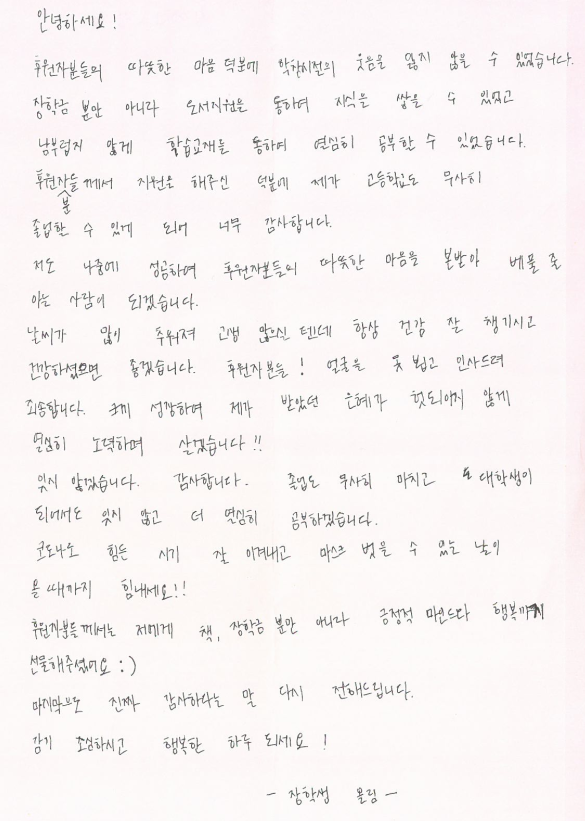 안녕하세요!
후원자분들의 따뜻한 마음 덕분에 학창시절의 웃음을 잃지 않을 수 있었습니다.
장학금 뿐만 아니라 도서지원을 통하여 지식을 쌓을 수 있었고
남부럽지 않게 학습교재를 통하여 열심히 공부할 수 있었습니다.
후원자분들께서 지원을 해주신 덕분에 제가 고등학교도 무사히
졸업할 수 있게 되어 너무 감사합니다.
저도 나중에 성공하여 후원자분들의 따뜻한 마음을 본받아 베풀 줄
아는 사람이 되겠습니다.
날씨가 많이 추워져 고생 많으신 텐데 항상 건강 잘 챙기시고
건강하셨으면 좋겠습니다. 후원자분들! 얼굴을 못 뵙고 인사드려
죄송합니다. 크게 성장하여 제가 받았던 은혜가 헛되이지 않게
열심히 노력하며 살겠습니다!!
잊지 않겠습니다. 감사합니다. 졸업도 무사히 마치고 또 대학생이
되어서도 잊지 않고 더 열심히 공부하겠습니다.
코로나도 힘든 시기 잘 이겨내고 마스크 벗을 수 있는 날이
올 때까지 힘내세요!!
후원자분들께서는 저에게 책, 장학금 뿐만 아니라 긍정적 마인드와 행복까지
선물해주셨어요 :)
마지막으로 진짜 감사하다는 말 다시 전해드립니다.
감기 조심하시고 행복한 하루 되세요!
- 장학생 올림 -